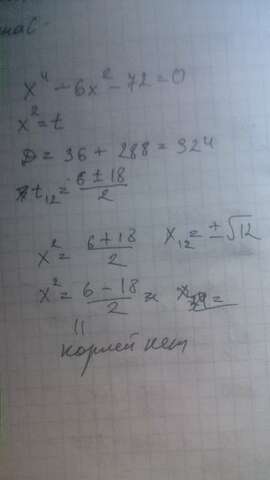 x⁴ - 6x² - 72 = 0
x² = t
D = 36 + 288 = 324
t₁₂ = (6 ± 18)/2
x² = (6 + 18)/2   x₁₂ = ±√12
x² = (6 - 18)/2
корней нет